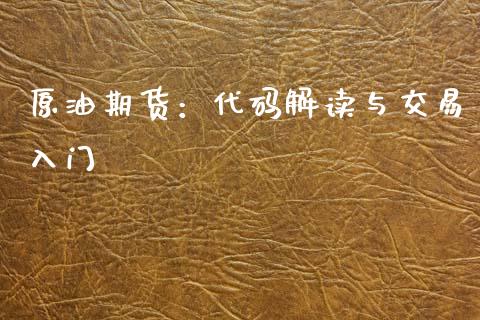 原油期货：代码解读与交易
入门